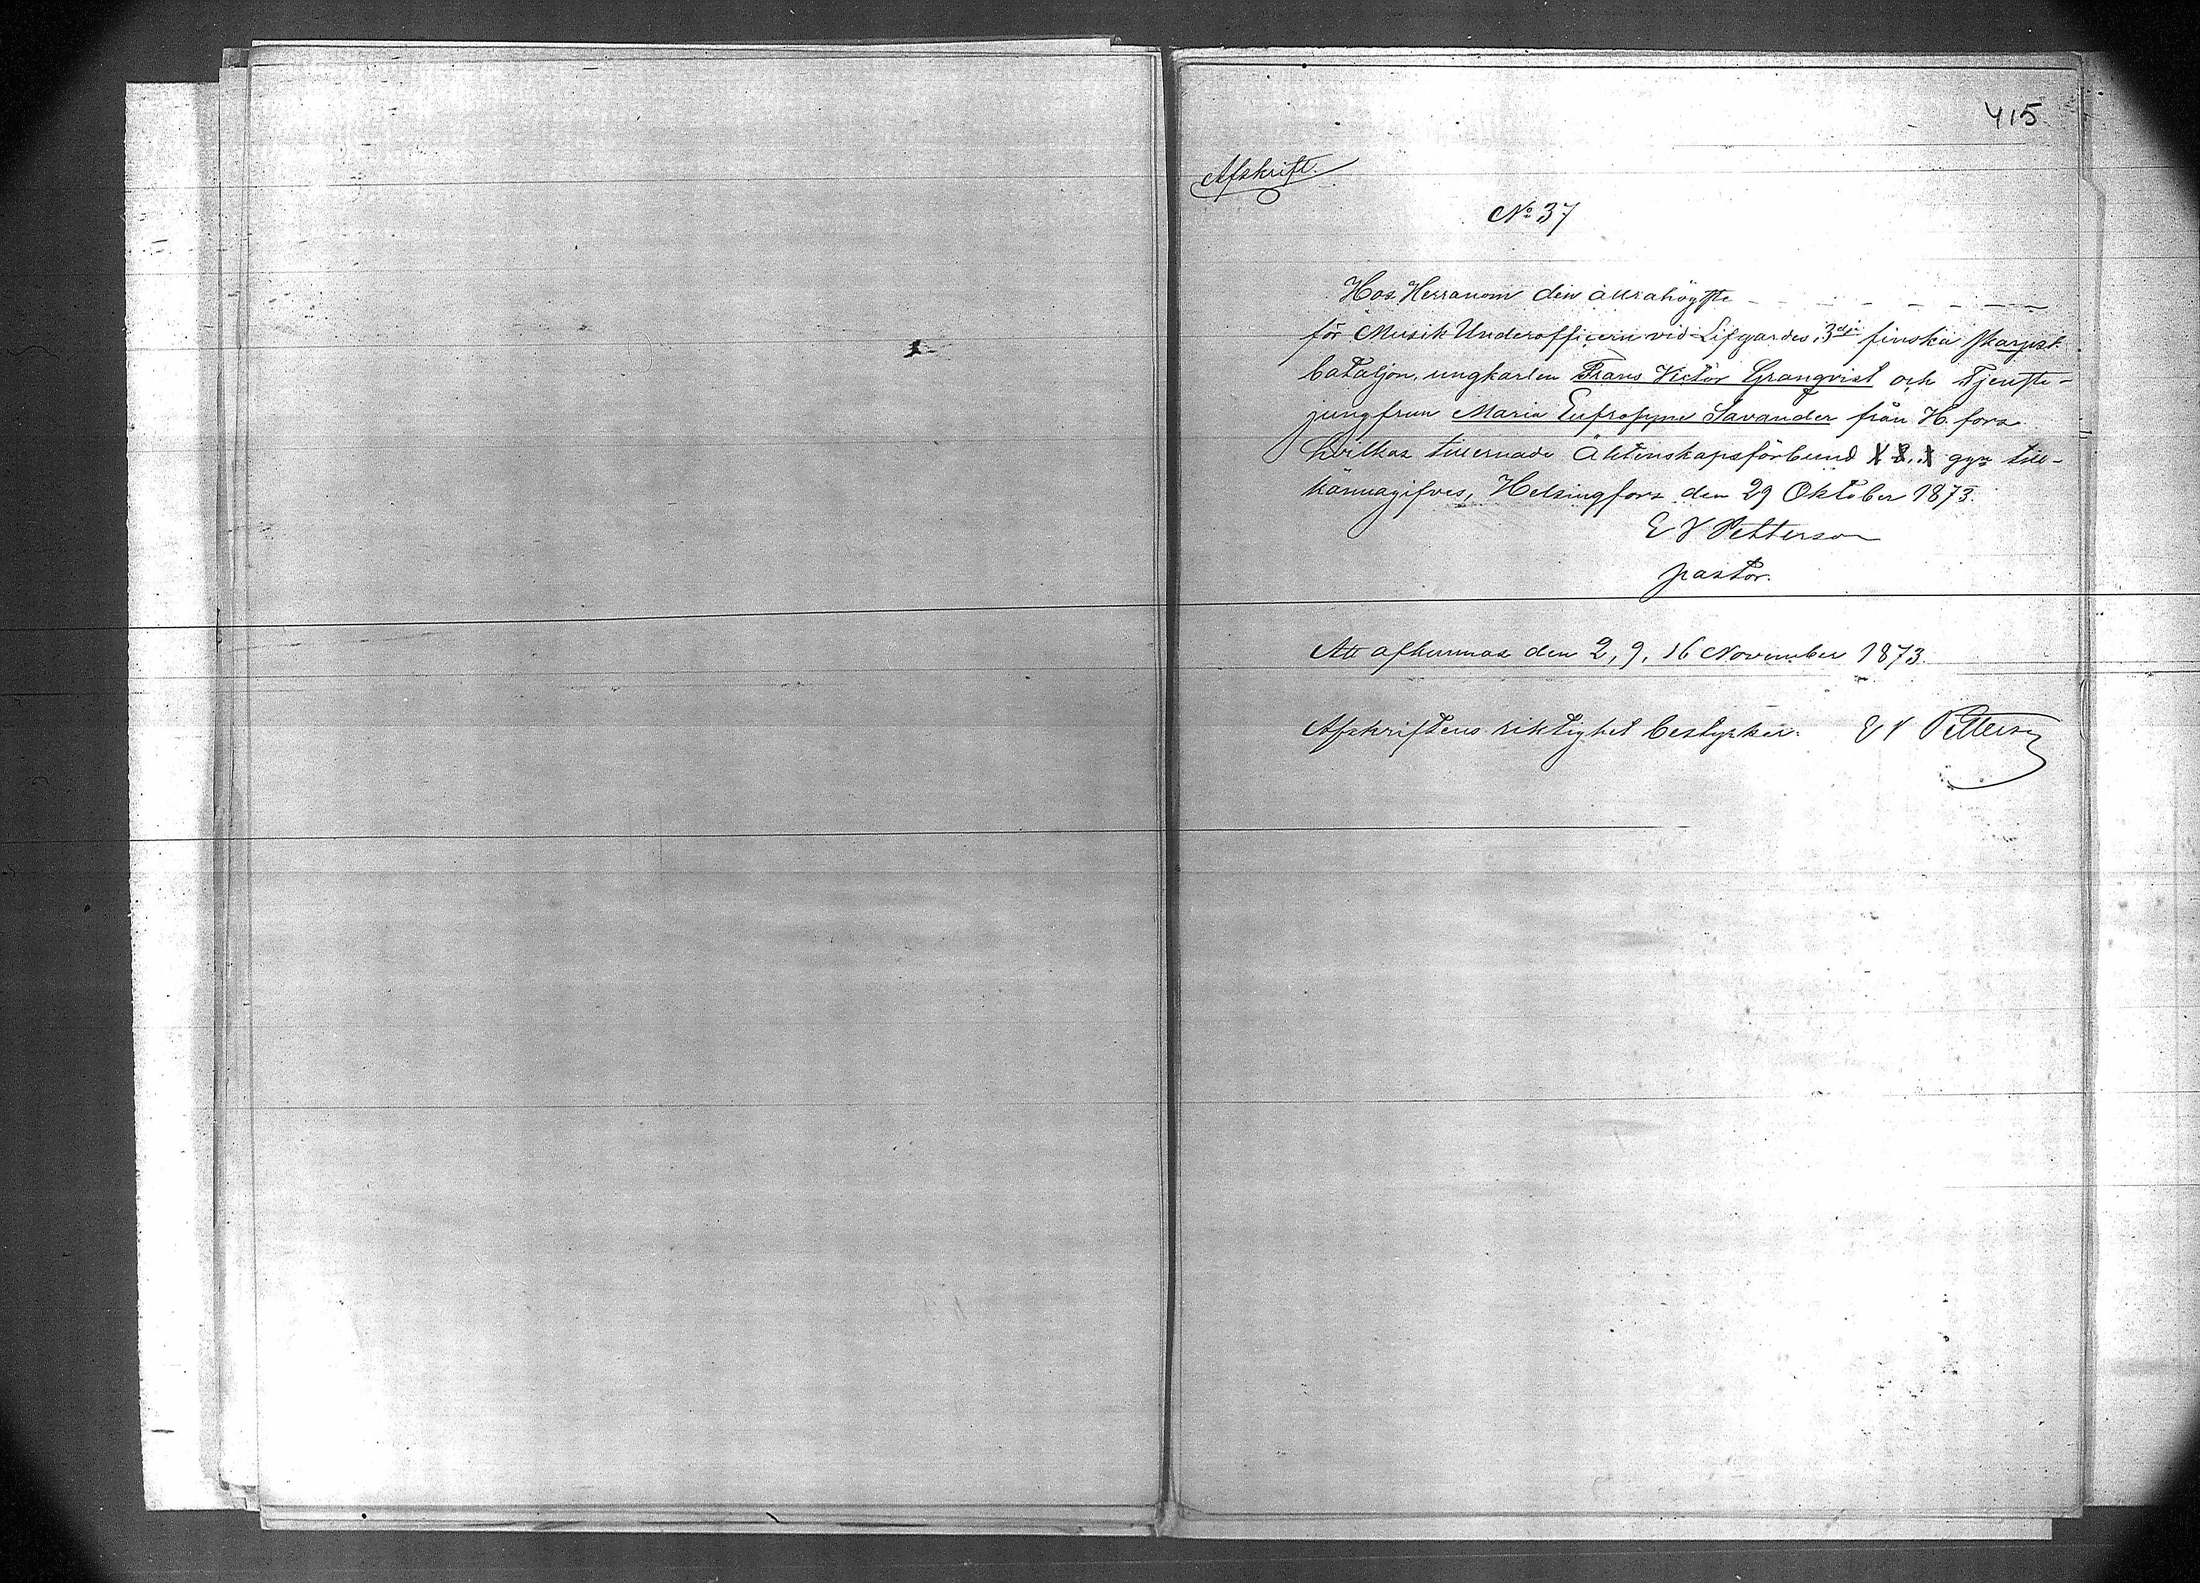 415
Afskrift.
No 37
Hos Herranom den allrahögste
för Musik Underofficern vid Lifgardes 3dje finska skarpsk.
bataljon, ungkarlen Frans Victor Granqvist och Tjenste-
jungfrun Maria Eufrosyne Savander från H. fors
hvilkas tillernade Äktenskapsförbund ggn till-
kännagifves, Helsingfors den 29 Oktober 1873.
E V Petterson
pastor.
Att afkunnas den 2, 9, 16 November 1873.
Afskriftens riktighet bestyrker. E V Petterson